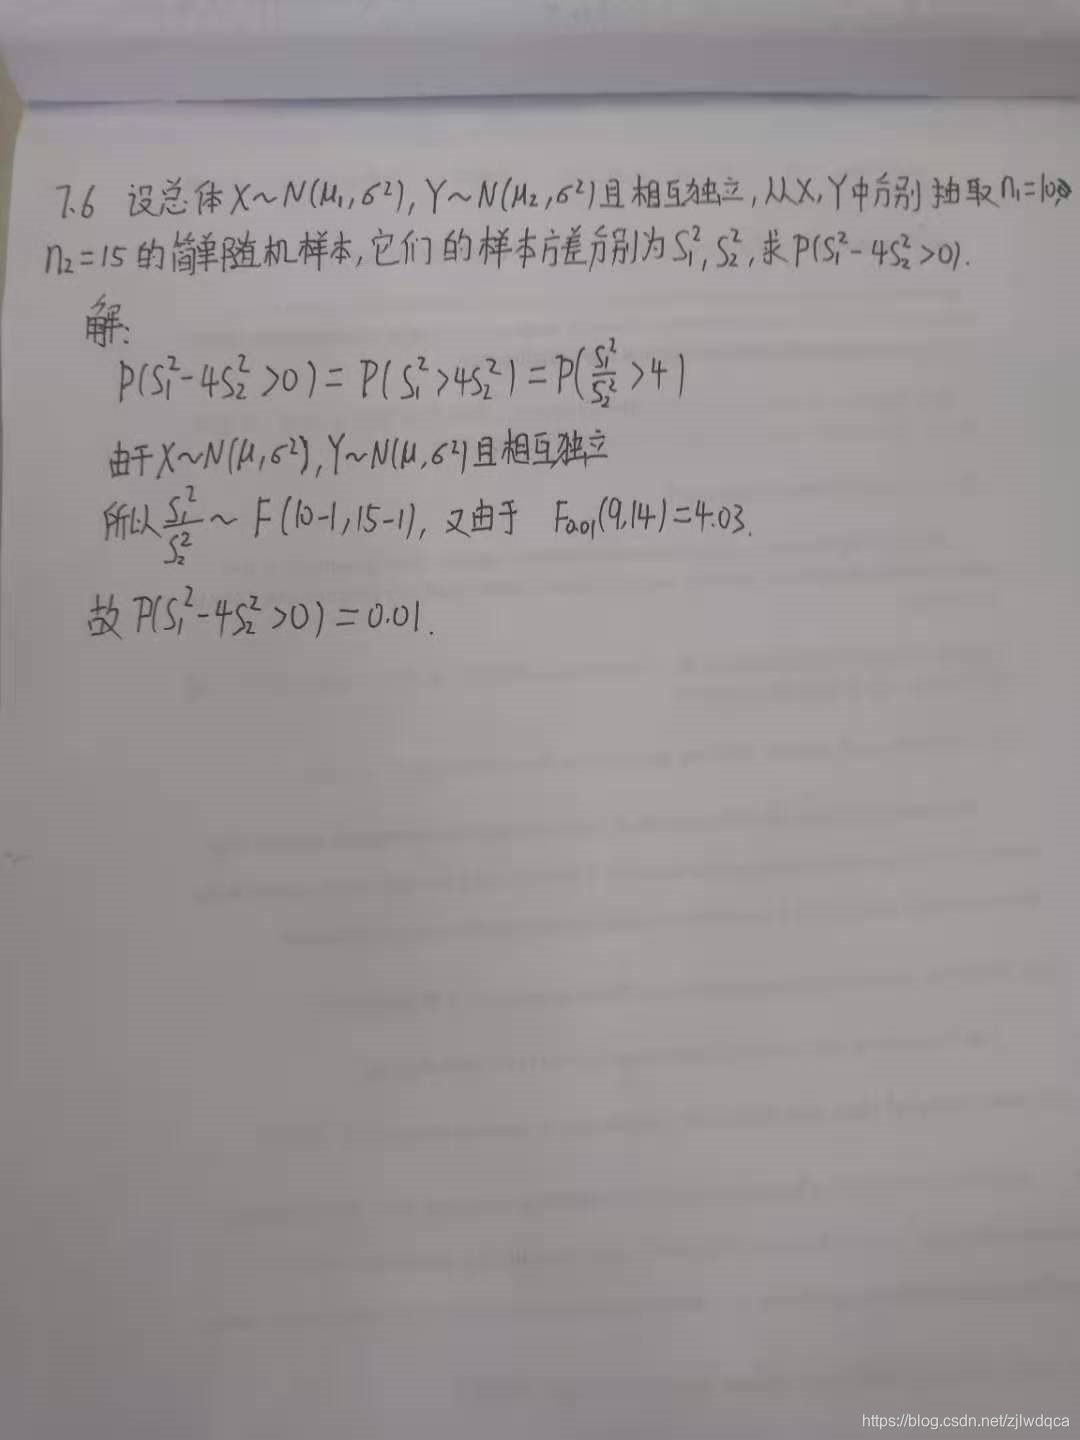 7.6 设总体X~N(μ₁,σ²), Y~N(μ₂,σ²)且相互独立,从X,Y中分别抽取n₁=10,
n₂=15的简单随机样本,它们的样本方差分别为S₁²,S₂²,求P(S₁²-4S₂²>0).
解:
P(S₁²-4S₂²>0)=P(S₁²>4S₂²)=P(S₁²/S₂²>4)
由于X~N(μ,σ²),Y~N(μ,σ²)且相互独立
所以S₁²/S₂²~F(10-1,15-1), 又由于 F₀.₀₁(9,14)=4.03.
故P(S₁²-4S₂²>0)=0.01.
https://blog.csdn.net/zjlwdqca